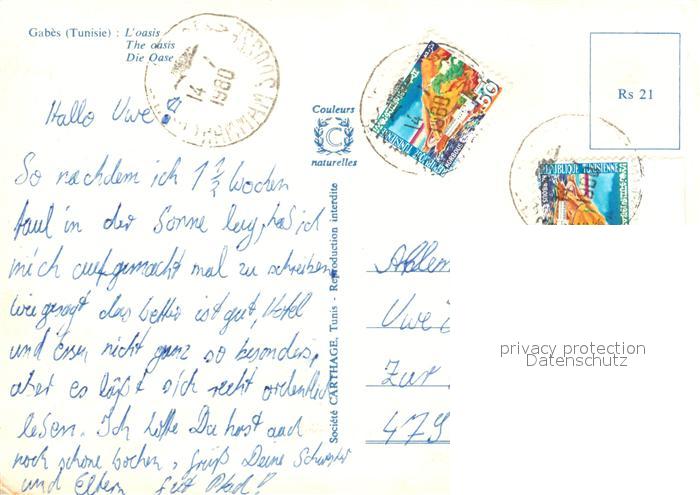 Gabès (Tunisie) : L'oasis
The oasis
Die Oase
14
1980
Rs 21
Couleurs
naturelles
50
14
1980
REPUBLIQUE TUNISIENNE
Hallo Uwe!
So nachdem ich 1 1/2 Wochen
faul in der Sonne lag, hab ich
mich aufgemacht mal zu schreiben
wie gesagt das Wetter ist gut, Hotel
und Essen nicht ganz so besonders,
aber es läßt sich recht ordentlich
leben. Ich hoffe Du hast auch
noch schöne Wochen, grüß Deine Schwester
und Eltern
Société CARTHAGE, Tunis - Reproduction interdite
Uwe
Zur
479
privacy protection
Datenschutz